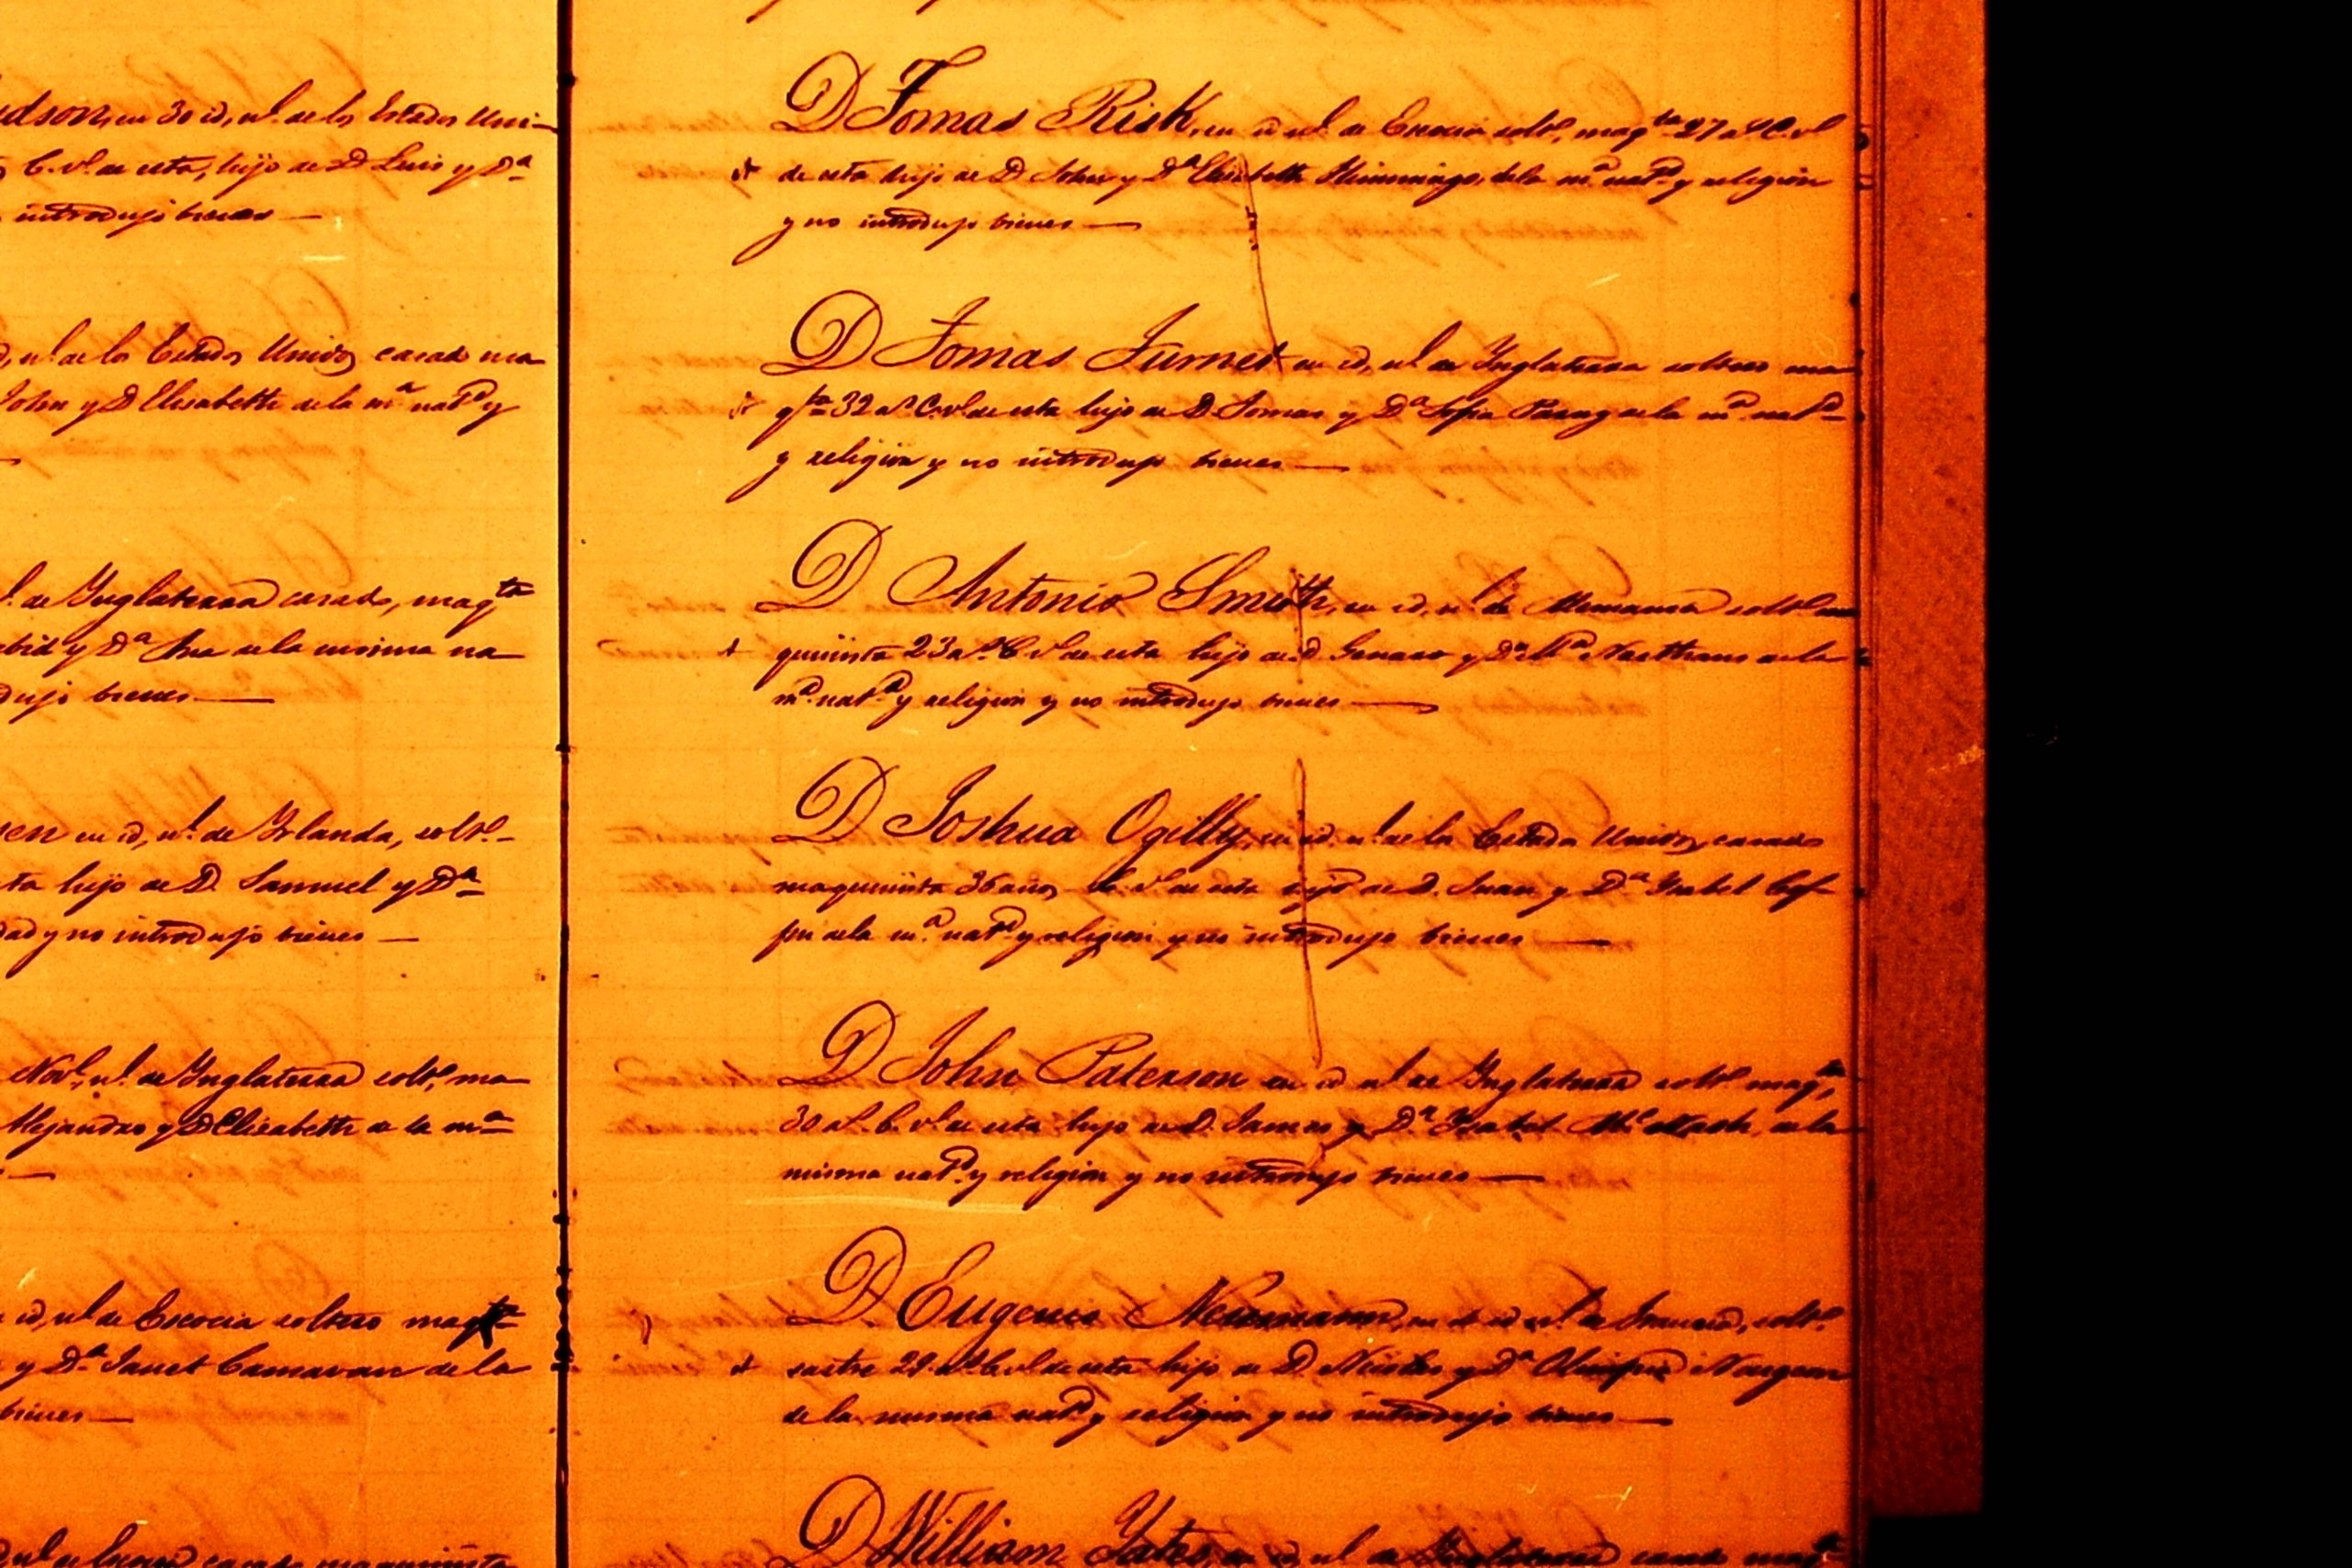 udson, en 30 id, nl. de los Estados Uni-
C. vl. de esta, hijo de D Luis y Da
introdujo bienes —
nl. de los Estados Unidos casado ma
John y D Elisabeth de la ma natd y
de Inglaterra casado, maqta
y Da Ana de la misma na
dujo bienes —
en id, nl. de Irlanda, soltº
ta hijo de D. Samuel y Da
dad y no introdujo bienes —
Novl, nl. de Inglaterra soltº, ma
Alejandro y D Elisabeth de la ma
id, nl de Escocia soltero maqta
y Da Janet Camavan de la
bienes —
casado maquinista
D Tomas Risk, en id nl. de Escocia soltº, maqta 27 as C. vl
de esta hijo de D John y Da Elisabeth Himmings, de la ma natd y religion
y no introdujo bienes —
D Tomas Turner en id, nl de Inglaterra soltero ma
qta 32 as C. vl de esta hijo de D Tomas y Da Sofia de la ma natd
y religion y no introdujo bienes —
D Antonio Smith, en id, nl de Alemania soltº ma
quinista 23 as C vl de esta hijo de D Genaro y Da Ma de la
ma natd y religion y no introdujo bienes —
D Joshua Ogilly, en id. nl de los Estados Unidos, casado
maquinista 36 años C. vl de esta hijo de D. Juan y Da Isabel
de la ma natd y religion y no introdujo bienes —
D John Paterson en id nl de Inglaterra soltº maqta,
30 as. C. vl. de esta hijo de D. James y Da Isabel Mc Nash, de la
misma natd y religion y no introdujo bienes —
D. Eugenio Neumann, en id nl de Francia, soltº.
sastre 29 as C. vl de esta hijo de D y Da Olimpia
de la misma natd y religion y no introdujo bienes —
D William Yates, en id, nl de Inglaterra casado maqta